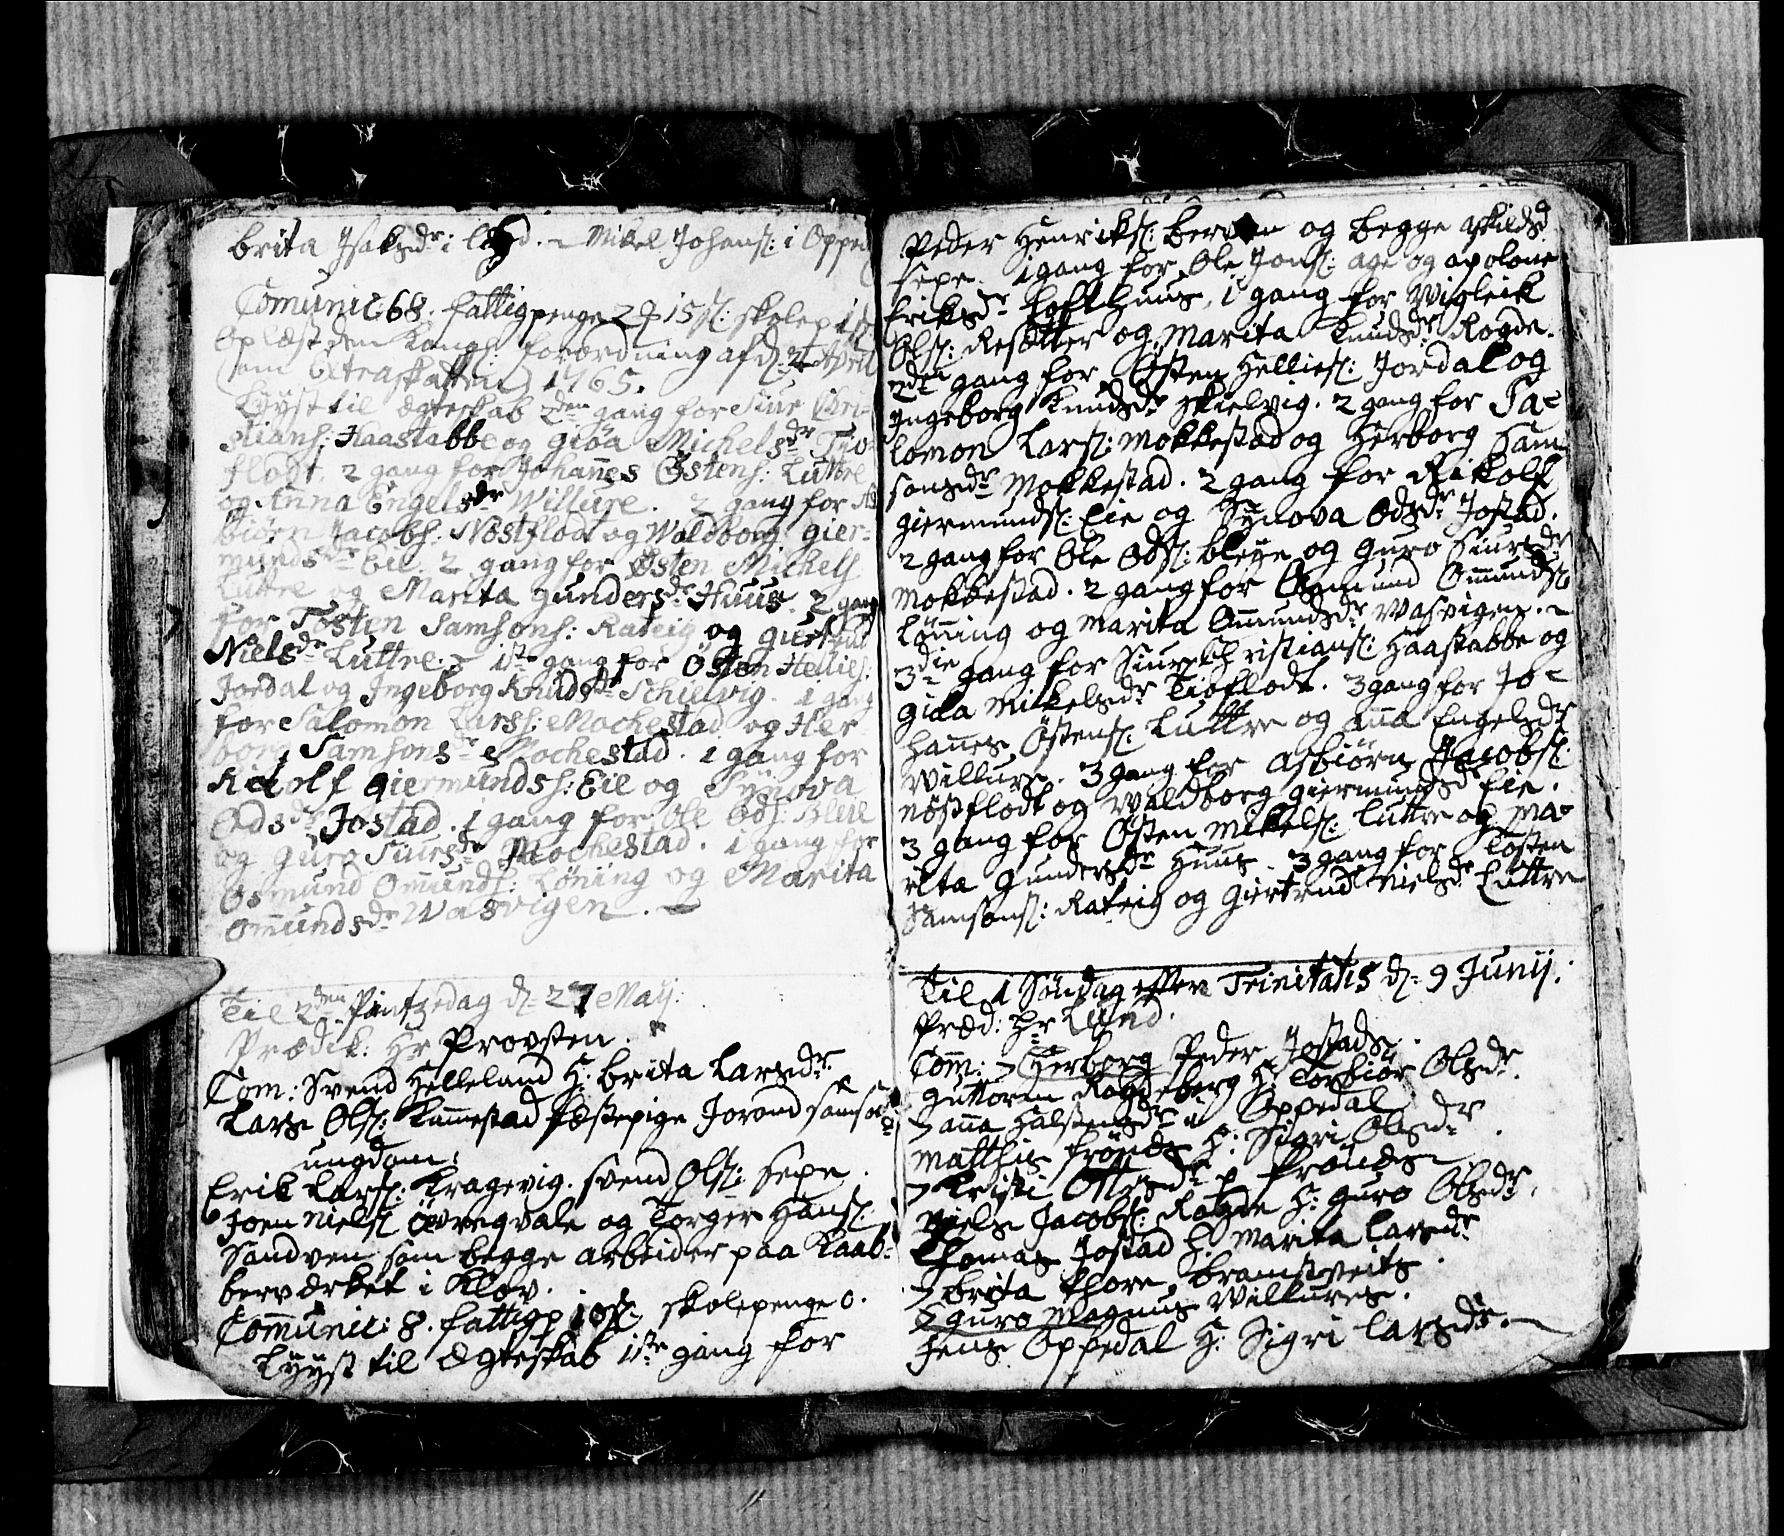 Brita Isaksdr: i Lund. - Mikel Johans: i Opped
Comunic: 68. fattigpenge 2 15 s: skolep
Oplæst den Kongl: forordning af d: 2 April
(om Extraskatten) 1765.
Lyyst til ægteskab 2den gang for Siur Chri-
stians: Haastabbe og Giøa Michelsdr Tio-
flodt. 2 gang for Johannes Østens: Luttre
og Anna Engelsdr Willure. 2 gang for As
biørn Jacobs: Nøstflodt og Waldborg Gier-
mundsdr Eie. 2 gang for Østen Michels
Luttre og Marita Gundersdr Huus. 2 gang
for Tosten Samsons: Rateig og Giertrud
Nielsdr Luttre. 1ste gang for Østen Hellies:
Jordal og Ingeborg Knudsdr Schielvig. 1 gang
for Salomon Larss: Mochestad og Her
borg Samsonsdr Mochestad. 1 gang for
Rikolf Giermundsh: Eie og Synova
Odsdr Jostad. 1 gang for Ole Ods: Bleie
og Guro Siursdr Mochestad. 1 gang for
Osmund Omunds: Løning og Marita
Omundsdr Wasvigen. -
Til 2den Pintzedag d: 27 May:
Prædik: Hr Provsten.
Com: Svend Helleland H: Brita Larsdr.
Lars Ols: Kamestad fæstepige Jorand Samsonsdr
ungdom:
Erik Lars: Kragevig. Svend Ols: Sexe.
Joen Niels Øvregvale og Torger Hans:
Sandven som begge arbeider paa Kaab-
berværket i Kløv.
Comunic: 8. fattigp 10 s: skolepenge 0.
Lyyst til Ægteskab 1ste gang for
Peder Henriks: Berven og Begge Askildsd
Sexe. 1 gang for Ole Jons: Age og Apolone
Eriksdr Lofthuus. 1 gang for Wigleik
Ols: Resætter og Marita Knudsdr Rogde.
2den gang for Østen Hellies: Jordal og
Ingeborg Knudsdr Skielvig. 2 gang for Sa-
lomon Lars: Mokkestad og Herborg Sam
sonsdr Mokkestad. 2 gang for Rikolf
Giermunds: Eie og Synova Odsdr Jostad.
2 gang for Ole Ods: Bleye og Guro Siursdr
Mokkestad. 2 gang for Osmund Omunds:
Lönning og Marita Omundsdr Wasvigen. -
3die gang for Siur Christians: Haastabbe og
Gida Mikelsdr Tioflodt. 3 gang for Jo-
hannes Østens: Luttre og Anna Engelsdr
Willure. 3 gang for Asbiørn Jacobs:
Nøstflodt og Waldborg Giermundsd Eie.
3 gang for Østen Mikels: Luttre og Ma-
rita Gundersdr Huus. 3 gang for Tosten
Samsons: Rateig og Giertrud Nielsdr Luttre
Til 1 Söndag efter Trinitatis d: 9 Junij.
Præd: Hr Lund.
Com: Herborg Peder Jostads.
Guttorm Rogdeberg H: Torbiör Olsdr.
Anna Halstensdr Oppedal
Matthis Frönes H: Sigri Olsdr.
Kristi Ottesdr Frönes
Niels Jacobs: Rogde H: Guro Olsdr.
Thomas Jostad H: Marita Larsdr
Brita Thore Bramstveits.
Guro Magnus Willures.
Jens Oppedal H: Sigri Larsdr.